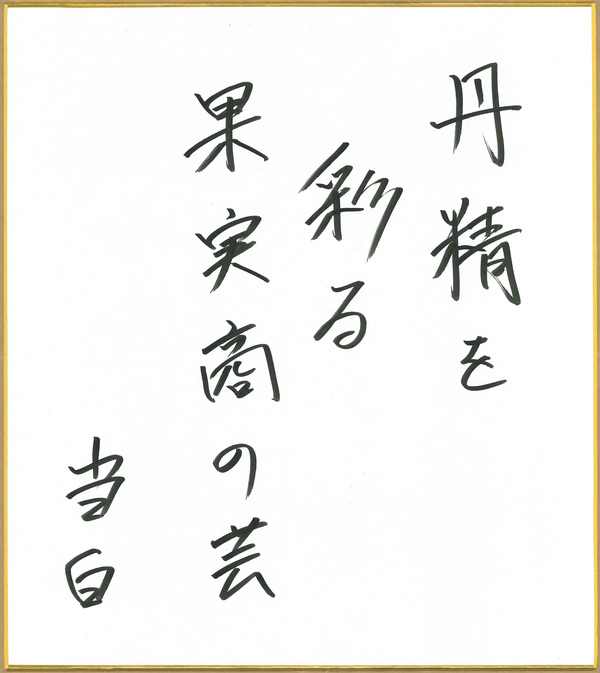 丹精を
彩る
果実商の芸
当白